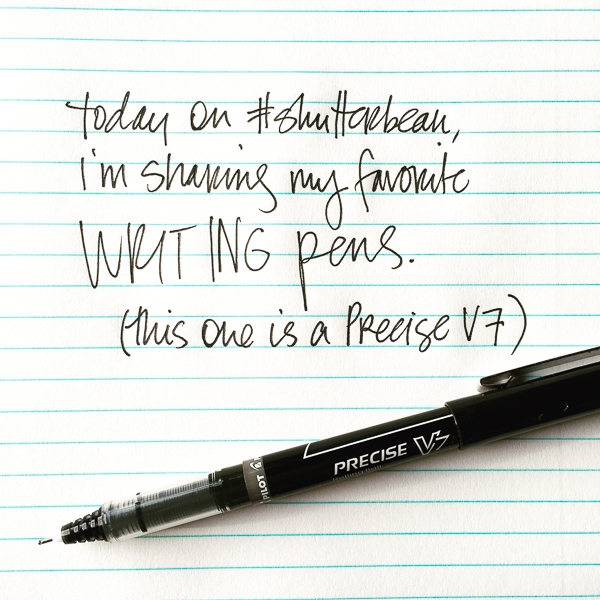 today on #shutterbean,
i'm sharing my favorite
WRITING pens.
(this one is a Precise V7)
PRECISE V7
rolling ball
PILOT